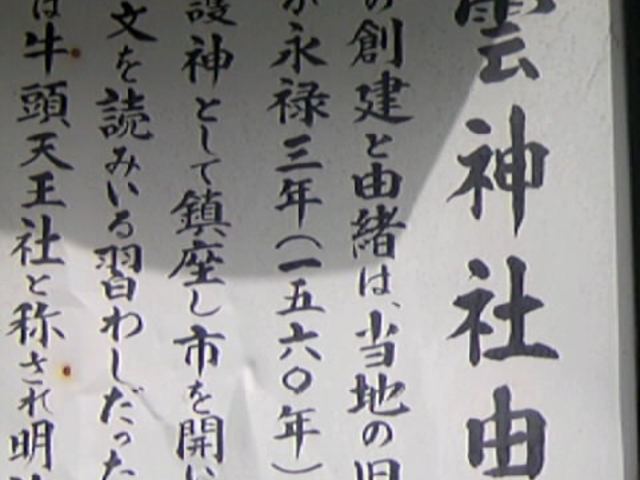 雲神社由
の創建と由緒は、当地の旧
が永禄三年(一五六〇年)
設神として鎮座し市を開い
文を読みいる習わしだった
は牛頭天王社と称され明治